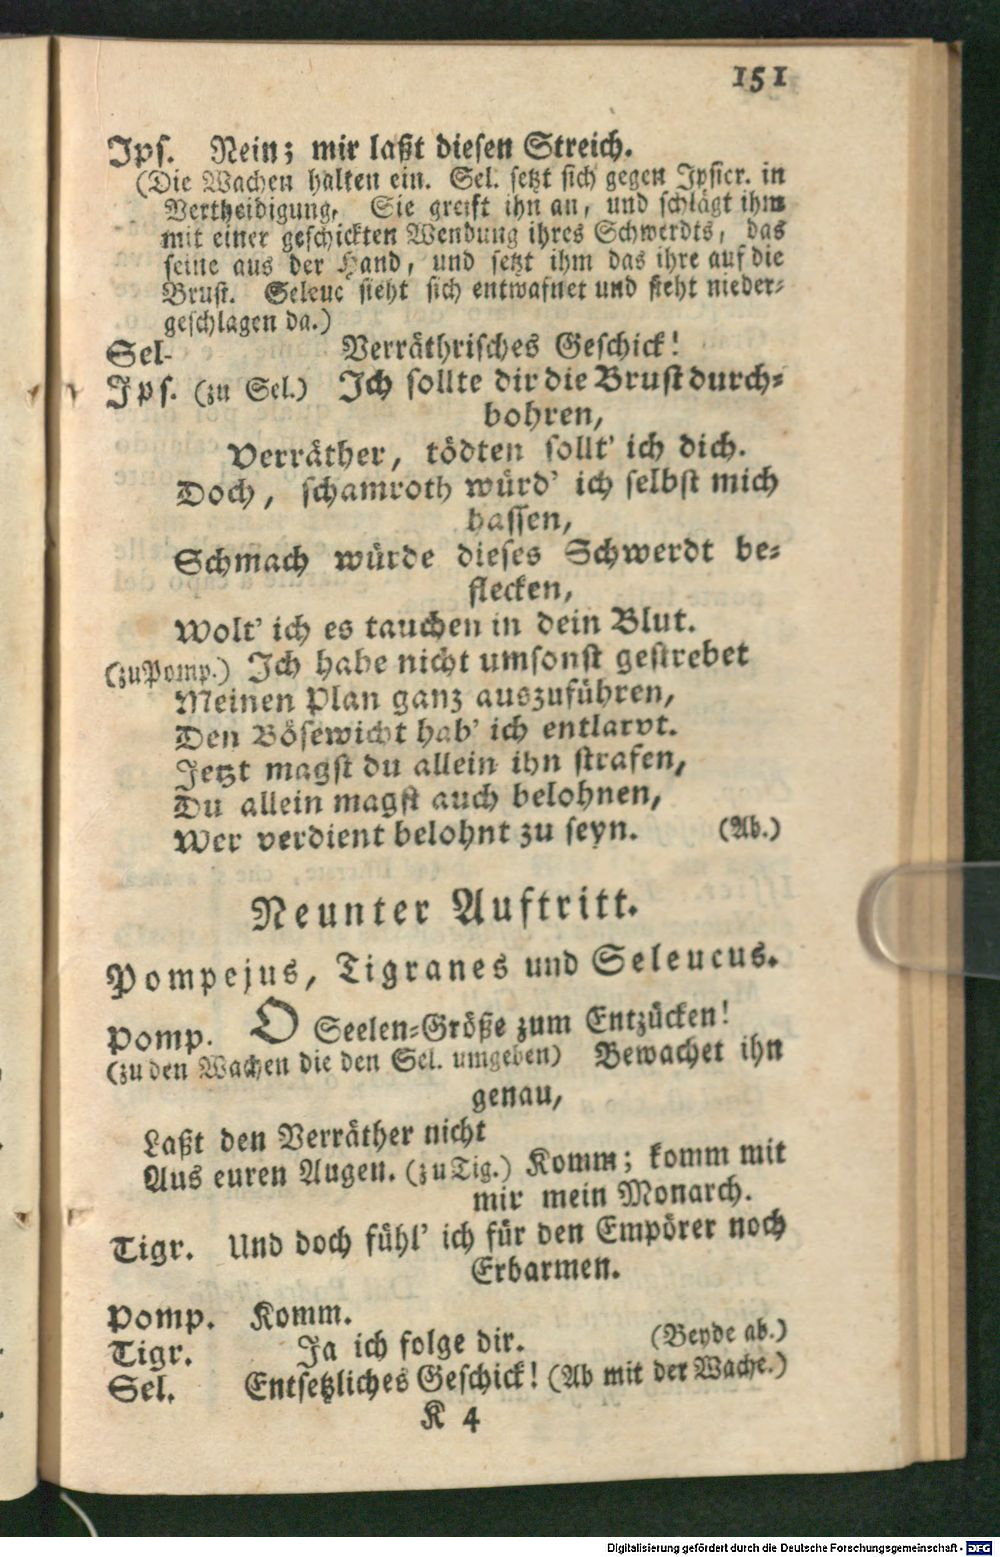 151
Ips. Nein; mir laßt diesen Streich.
(Die Wachen halten ein. Sel. setzt sich gegen Ipsicr. in
Vertheidigung, Sie greift ihn an, und schlägt ihm
mit einer geschickten Wendung ihres Schwerdts, das
seine aus der Hand, und setzt ihm das ihre auf die
Brust. Seleuc sieht sich entwafnet und steht nieder-
geschlagen da.)
Sel- Verräthrisches Geschick!
Ips. (zu Sel.) Ich sollte dir die Brust durch-
bohren,
Verräther, tödten sollt' ich dich.
Doch, schamroth würd' ich selbst mich
hassen,
Schmach würde dieses Schwerdt be-
flecken,
Wolt' ich es tauchen in dein Blut.
(zu Pomp.) Ich habe nicht umsonst gestrebet
Meinen Plan ganz auszuführen,
Den Bösewicht hab' ich entlarvt.
Jetzt magst du allein ihn strafen,
Du allein magst auch belohnen,
Wer verdient belohnt zu seyn. (Ab.)
Neunter Auftritt.
Pompejus, Tigranes und Seleucus.
Pomp. O Seelen-Größe zum Entzücken!
(zu den Wachen die den Sel. umgeben) Bewachet ihn
genau,
Laßt den Verräther nicht
Aus euren Augen. (zu Tig.) Komm; komm mit
mir mein Monarch.
Tigr. Und doch fühl' ich für den Empörer noch
Erbarmen.
Pomp. Komm.
Tigr. Ja ich folge dir. (Beyde ab.)
Sel. Entsetzliches Geschick! (Ab mit der Wache.)
K 4
Digitalisierung gefördert durch die Deutsche Forschungsgemeinschaft - DFG